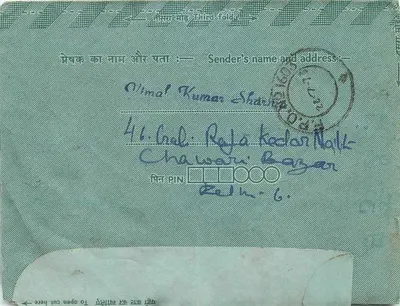 तीसरा मोड़ Third fold
प्रेषक का नाम और पता :— Sender's name and address :—
Vimal Kumar Sharma
46. Gali Raja Kedar Nath
Chawari Bazar
पिन PIN
Delhi-6.
To open cut here